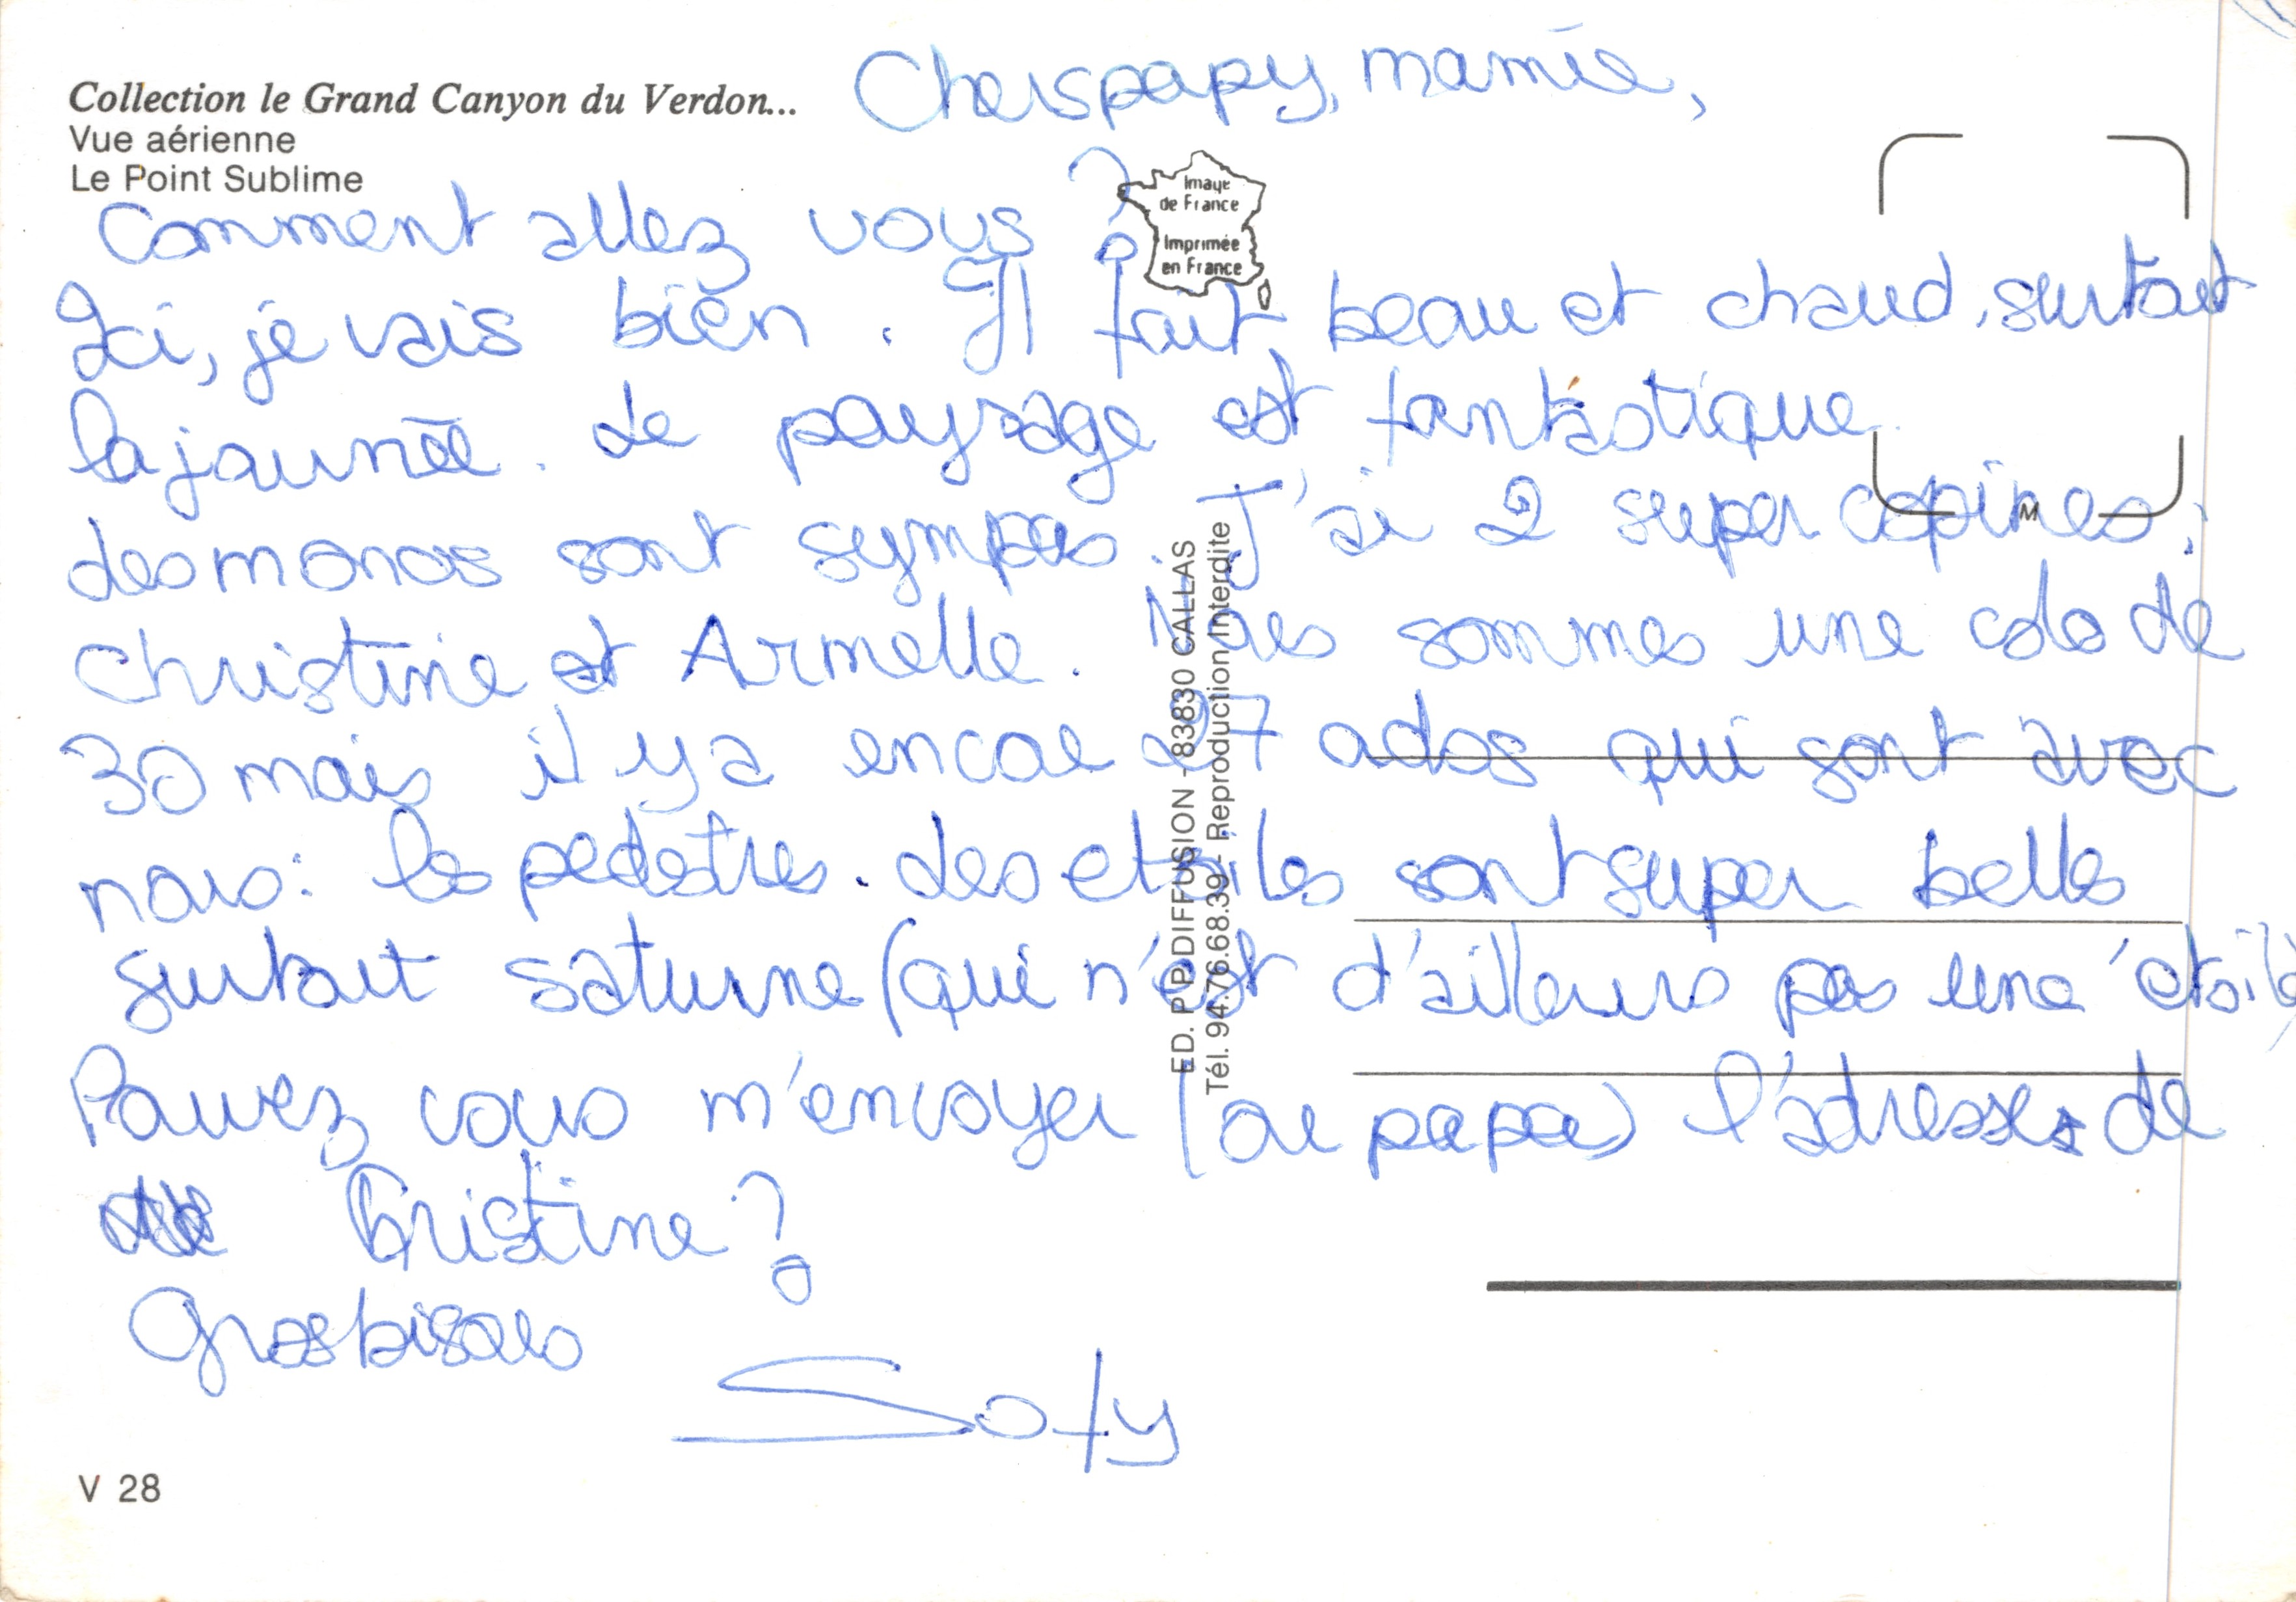 Collection le Grand Canyon du Verdon...
Vue aérienne
Le Point Sublime
Chers papy, mamie,
Image
de France
Imprimée
en France
Comment allez vous ?
Ici, je vais bien. Il fait beau et chaud, surtout
la journée. Le paysage est fantastique.
Les monos sont sympas. J'ai 2 super copines,
Christine et Armelle. Nous sommes une colo de
30 mais il y a encore 27 ados qui sont avec
nous: les pedestres. Les etoiles sont super belles
surtout saturne (qui n'est d'ailleurs pas une étoile)
Pouvez vous m'envoyer (ou papa) l'adresse de
Cristine ?
Gros bisous
Sofy
ED. P.P.DIFFUSION - 83830 CALLAS
Tél. 94.76.68.39 - Reproduction Interdite
M
V 28